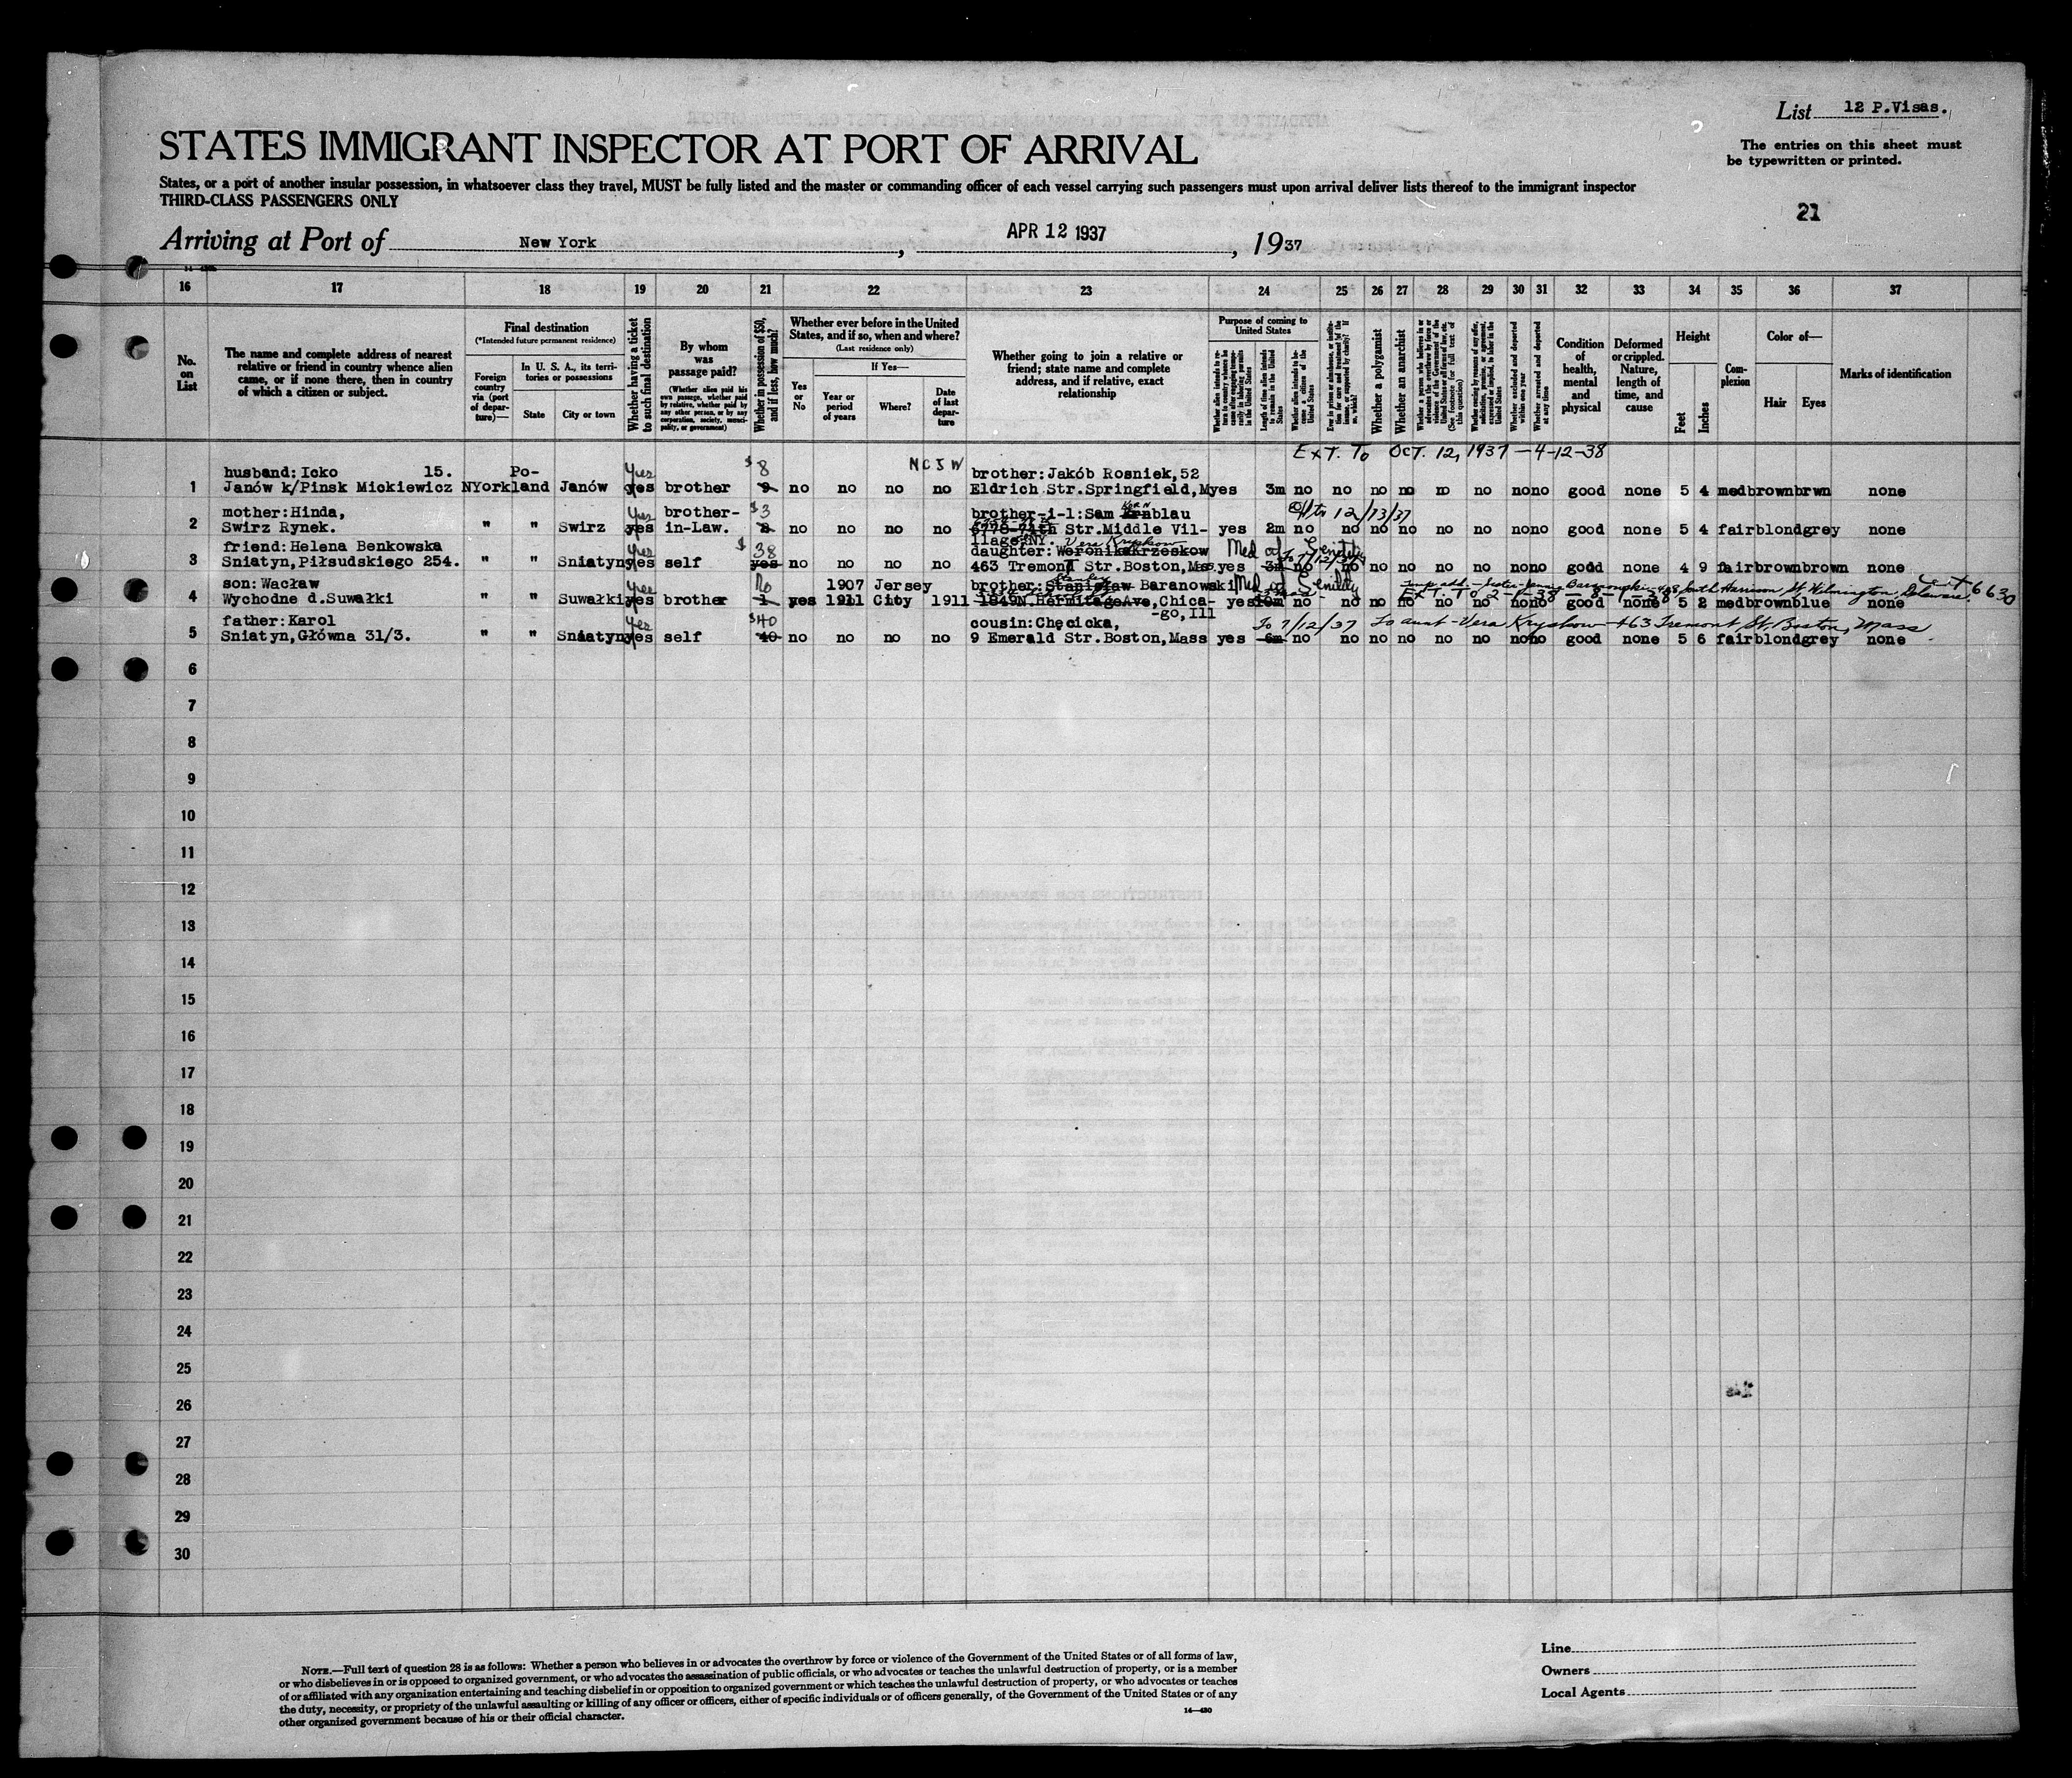 List 12 P.Visas.
STATES IMMIGRANT INSPECTOR AT PORT OF ARRIVAL
The entries on this sheet must
be typewritten or printed.
States, or a port of another insular possession, in whatsoever class they travel, MUST be fully listed and the master or commanding officer of each vessel carrying such passengers must upon arrival deliver lists thereof to the immigrant inspector
THIRD-CLASS PASSENGERS ONLY
21
Arriving at Port of New York, APR 12 1937, 1937
16 17 18 19 20 21 22 23 24 25 26 27 28 29 30 31 32 33 34 35 36 37
No. on List
The name and complete address of nearest relative or friend in country whence alien came, or if none there, then in country of which a citizen or subject.
Final destination
(*Intended future permanent residence)
Foreign country via (port of departure)—
In U. S. A., its territories or possessions
State
City or town
Whether having a ticket to such final destination
By whom was passage paid?
(Whether alien paid his own passage, whether paid by relative, whether paid by any other person, or by any corporation, society, municipality, or government)
Whether in possession of $50, and if less, how much?
Whether ever before in the United States, and if so, when and where?
(Last residence only)
Yes or No
If Yes—
Year or period of years
Where?
Date of last departure
Whether going to join a relative or friend; state name and complete address, and if relative, exact relationship
Purpose of coming to United States
Length of time alien intends to remain in the United States
Whether alien intends to become a citizen of the United States
Whether a polygamist
Whether an anarchist
Whether excluded and deported within one year
Whether arrested and deported at any time
Condition of health, mental and physical
Deformed or crippled. Nature, length of time, and cause
Height
Feet
Inches
Complexion
Color of—
Hair
Eyes
Marks of identification
Ext. To Oct. 12, 1937 — 4-12-38
husband:Icko 15. Po- Yes $8 NCJW brother:Jakób Rosniek,52
1 Janów k/Pinsk Mickiewicz NYorkland Janów yes brother 9 no no no no Eldrich Str.Springfield,Myes 3m no no no no no no no no good none 5 4 medbrownbrwn none
mother:Hinda, Yes brother- $3 brother-i-l:Sam blau to 12/13/37
2 Swirz Rynek. " " Swirz yes in-Law. no no no no 74th Str.Middle Vil- yes 2m no no no no no no no no good none 5 4 fairblondgrey none
llage,NY. Vera Kryskow
friend:Helena Benkowska yes $38 daughter:WeronikaKrzeskow Med cf Senility To 7/12/37
3 Sniatyn,Piłsudskiego 254. " " Sniatynyes self yes no no no no 463 Tremont Str.Boston,Mas.yes 3m no no no no no no no no good none 4 9 fairbrownbrown none
son:Wacław yes No 1907 Jersey Stanley brother:Stanisław Baranowski Med cf Senility South Harrison St Wilmington, Delaware 6630
4 Wychodne d.Suwałki " " Suwałkiyes brother 1 yes 1911 City 1911 1849N.HermitageAve,Chica- yes 10m no no no no no no no no good none 5 2 medbrownblue none
Ext. To 2-1-38 — 8-1-38
-go,Ill
father:Karol yes $40 cousin:Chęcicka, To 7/12/37 To aunt - Vera Kryskow - 463 Tremont St. Boston, Mass
5 Sniatyn,Główna 31/3. " " Sniatynyes self 40 no no no no 9 Emerald Str.Boston,Mass yes 6m no no no no no no no no good none 5 6 fairblondgrey none
6
7
8
9
10
11
12
13
14
15
16
17
18
19
20
21
22
23
24
25
26
27
28
29
30
NOTE.—Full text of question 28 is as follows: Whether a person who believes in or advocates the overthrow by force or violence of the Government of the United States or of all forms of law,
or who disbelieves in or is opposed to organized government, or who advocates the assassination of public officials, or who advocates or teaches the unlawful destruction of property, or is a member
of or affiliated with any organization entertaining and teaching disbelief in or opposition to organized government or which teaches the unlawful destruction of property, or who advocates or teaches
the duty, necessity, or propriety of the unlawful assaulting or killing of any officer or officers, either of specific individuals or of officers generally, of the Government of the United States or of any
other organized government because of his or their official character.
14—430
Line
Owners
Local Agents